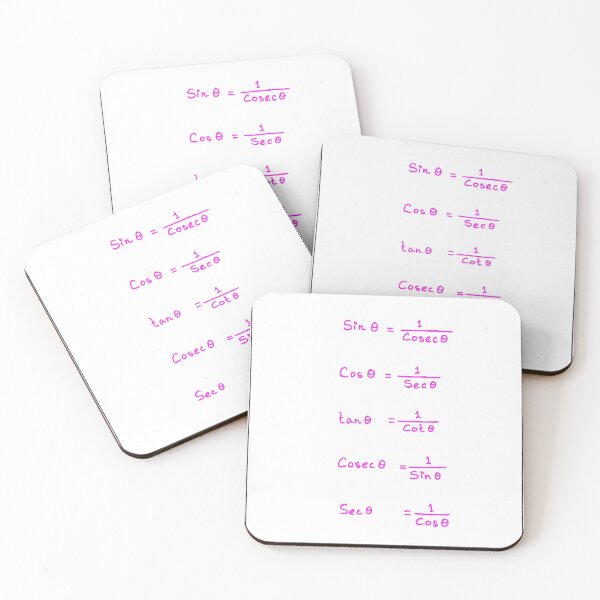 Sin θ = 1/Cosec θ
Cos θ = 1/Sec θ
Sin θ = 1/Cosec θ
Cos θ = 1/Sec θ
tan θ = 1/Cot θ
Cosec θ = 1
Sin θ = 1/Cosec θ
Cos θ = 1/Sec θ
tan θ = 1/Cot θ
Cosec θ = 1/Si
Sec θ
Sin θ = 1/Cosec θ
Cos θ = 1/Sec θ
tan θ = 1/Cot θ
Cosec θ = 1/Sin θ
Sec θ = 1/Cos θ